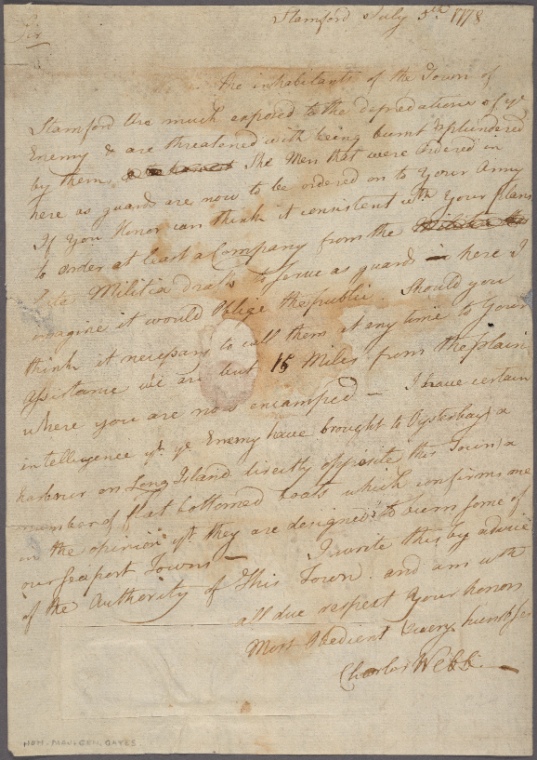 Stamford July 5th 1778
Sir
The inhabitants of the Town of
Stamford are much exposed to the depredations of ye
Enemy & are threatened with being burnt & plundered
by them The Men that were ordered in
here as guard are now to be ordered on to Your Army
If You Honor can think it consistent with Your plans
to order at least a Company from the
Militia drafts to serve as guard in here I
imagine it would Oblige the publick Should you
think it necessary to call them at any time to Your
Assistance we are but 15 Miles from the plain
where you are now encamped — I have certain
intelligence yt ye Enemy have brought to Oysterbay (a
harbour on Long Island directly opposite this Town) a
number of flat bottomed boats which confirms me
in the opinion yt they are designed to burn some of
our seaport Towns — I write this by advice
of the Authority of This Town and am with
all due respect Your honors
Most Obedient & very humble
Charles Webb —
HON. MAJ. GEN. GATES